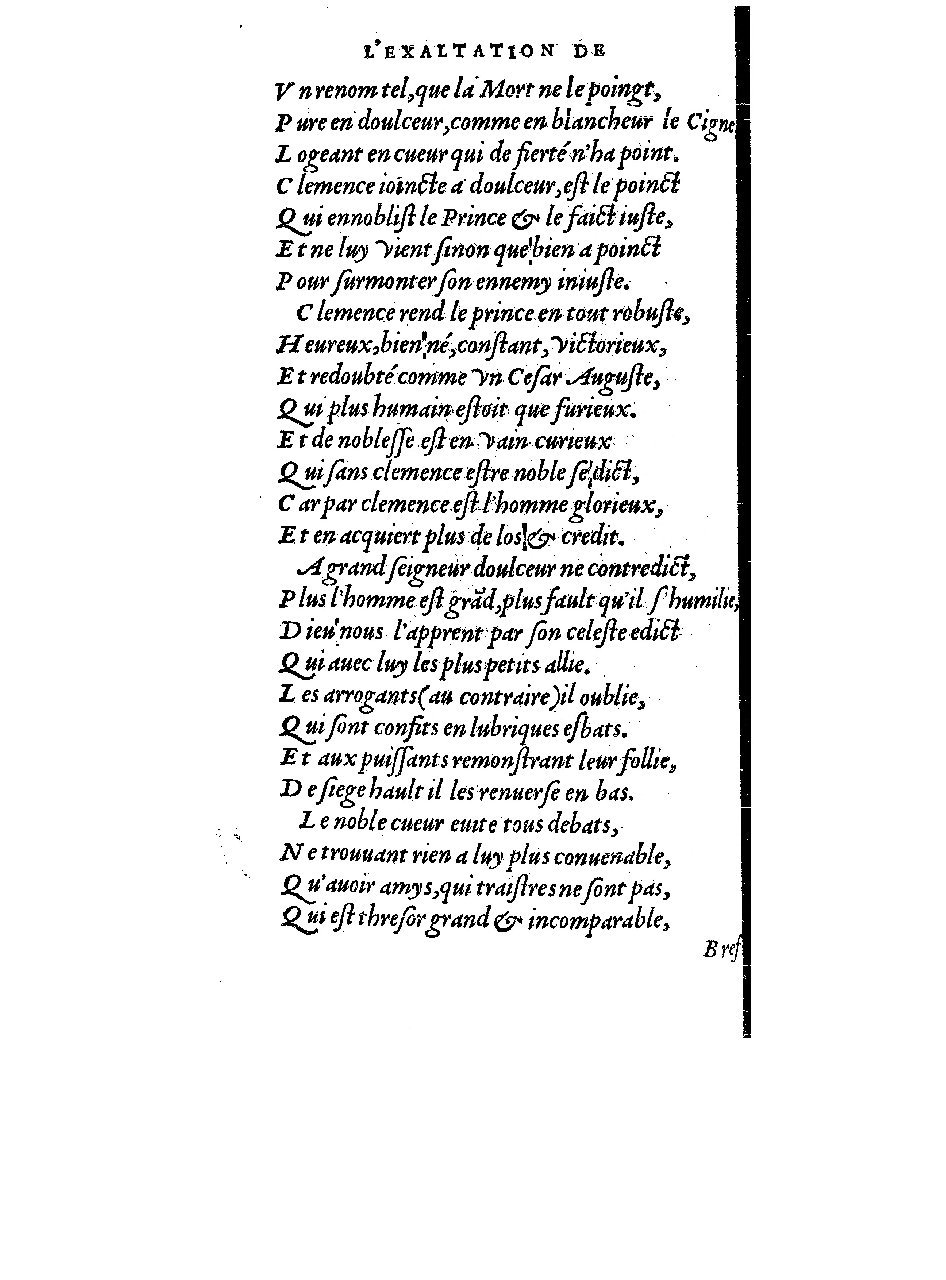 L'EXALTATION DE
Vn renom tel, que la Mort ne le poingt,
Pure en doulceur, comme en blancheur le Cigne
Logeant en cueur qui de fierté n'ha point.
Clemence ioincte a doulceur, eſt le poinct
Qui ennobliſt le Prince & le faict iuſte,
Et ne luy vient ſinon que bien a poinct
Pour ſurmonter ſon ennemy iniuſte.
Clemence rend le prince en tout robuſte,
Heureux, bien né, conſtant, victorieux,
Et redoubté comme vn Ceſar Auguſte,
Qui plus humain eſtoit que furieux.
Et de nobleſſe eſt en vain curieux
Qui ſans clemence eſtre noble ſe dict,
Car par clemence eſt l'homme glorieux,
Et en acquiert plus de los & credit.
A grand ſeigneur doulceur ne contredict,
Plus l'homme eſt grãd, plus fault qu'il ſ'humilie,
Dieu nous l'apprent par ſon celeſte edict
Qui auec luy les plus petits allie.
Les arrogants (au contraire) il oublie,
Qui ſont confits en lubriques eſbats.
Et aux puiſſants remonſtrant leur follie,
De ſiege hault il les renuerſe en bas.
Le noble cueur euite tous debats,
Ne trouuant rien a luy plus conuenable,
Qu'auoir amys, qui traiſtres ne ſont pas,
Qui eſt threſor grand & incomparable,
Bref